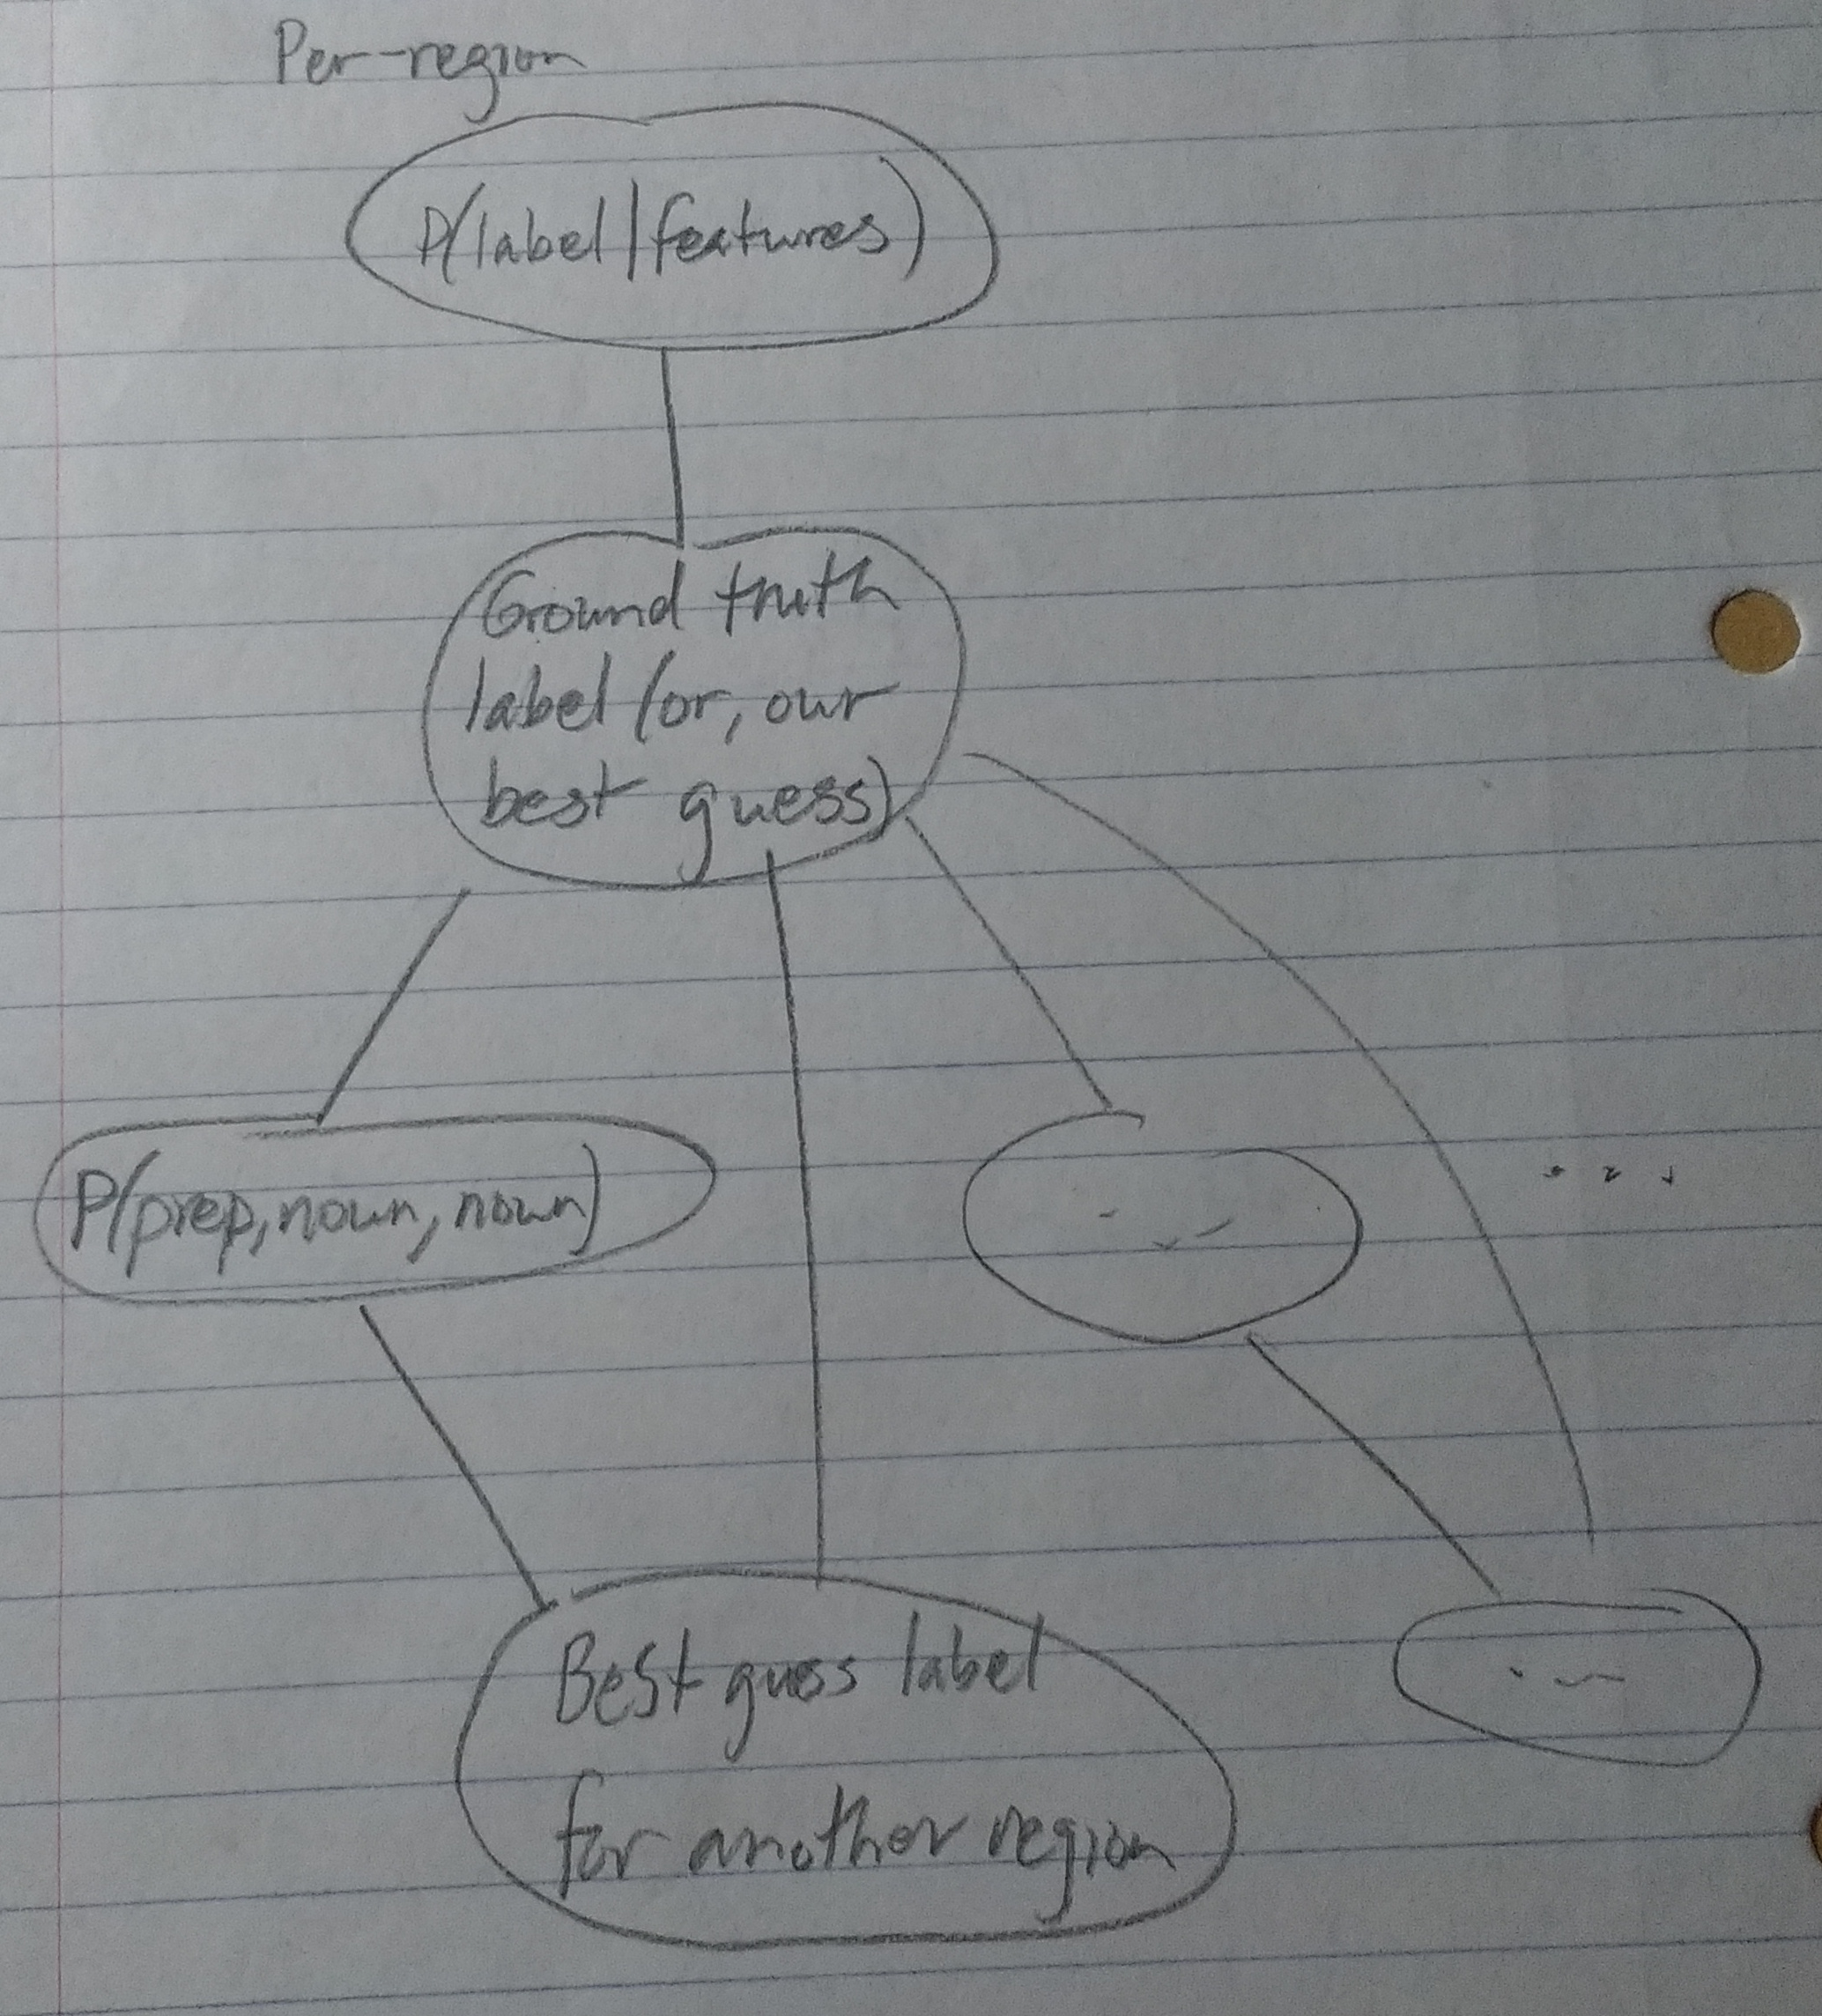 Per-region
P(label|features)
Ground truth
label (or, our
best guess)
P(prep, noun, noun)
...
...
Best guess label
for another region
...